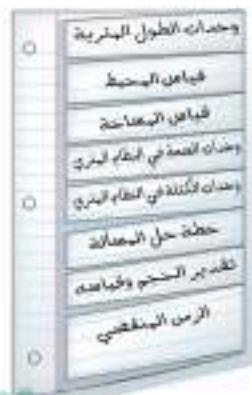 وحدات الطول المترية
قياس المحيط
قياس المساحة
وحدات السعة في النظام المتري
وحدات الكتلة في النظام المتري
خطة حل المسألة
تقدير الحجم وقياسه
الزمن المنقضي